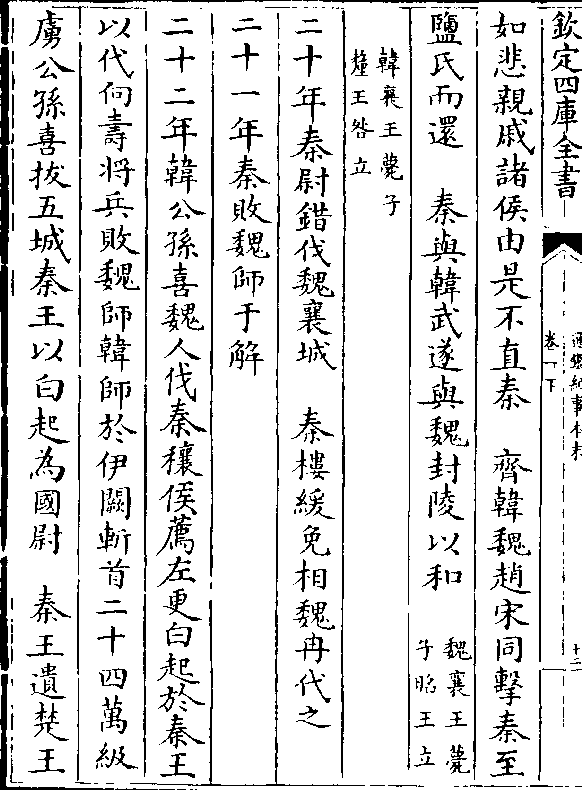 欽定四庫全書
卷一下
十三
如悲親戚諸侯由是不直秦　齊韓魏趙宋同擊秦至
鹽氏而還　秦與韓武遂與魏封陵以和　魏襄王薨子昭王立
韓襄王薨子釐王咎立
二十年秦尉錯伐魏襄城　秦樓緩免相魏冉代之
二十一年秦敗魏師于解
二十二年韓公孫喜魏人伐秦穰侯薦左更白起於秦王
以代向壽將兵敗魏師韓師於伊闕斬首二十四萬級
虜公孫喜拔五城秦王以白起為國尉　秦王遺楚王